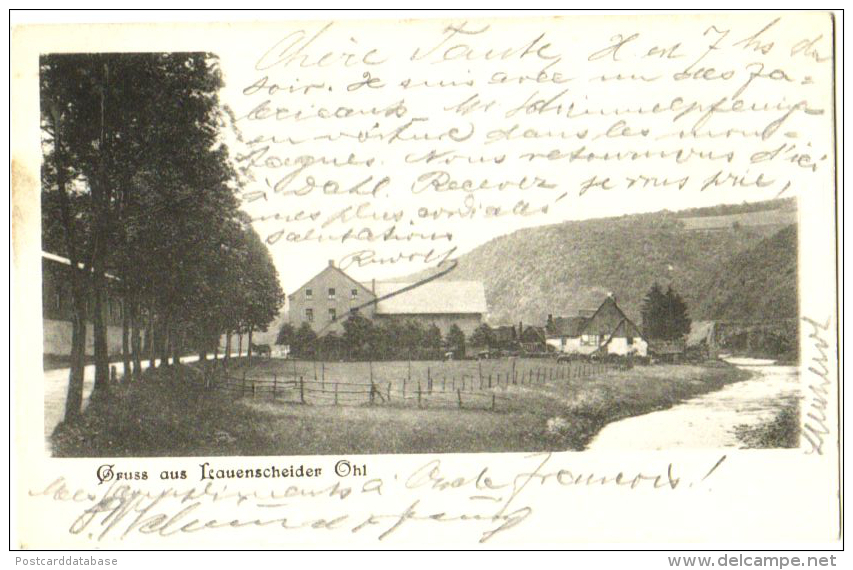 Chère Tante Il est 7 hs du
soir. Je suis avec un des fa-
bricants Mr Schimmelpfennig
en voiture dans les mon-
tagnes. Nous retournons d'ici
à Dahl. Recevez, je vous prie,
mes plus cordiales
salutations
Rudolf
Gruss aus Lauenscheider Ohl
Mes compliments à Oncle François!
Postcarddatabase
www.delcampe.net